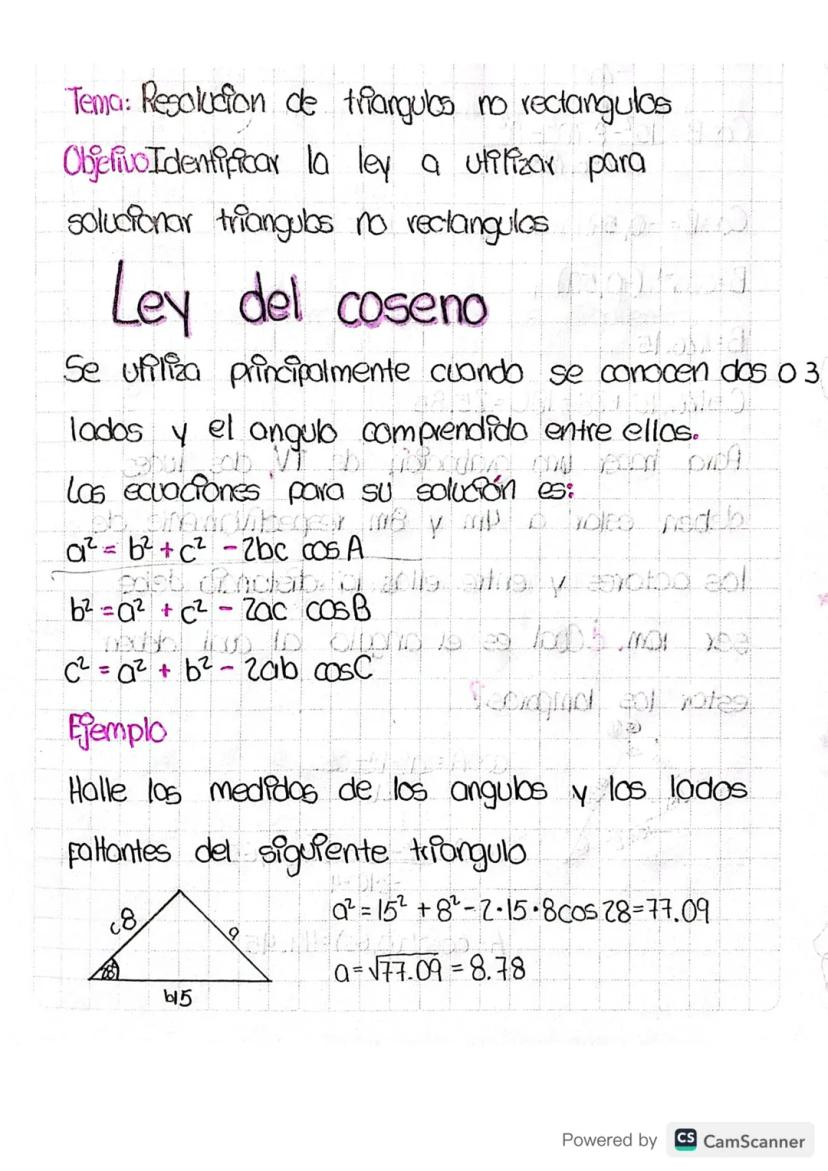 Tema: Resolucion de triangulos no rectangulos
Objetivo Identificar la ley a utilizar para
solucionar triangulos no rectangulos
Ley del coseno
Se utiliza principalmente cuando se conocen dos o 3
lados y el angulo comprendido entre ellos.
Las ecuaciones para su solución es:
a² = b² + c² - 2bc cos A
b² = a² + c² - 2ac cos B
c² = a² + b² - 2ab cos C
Ejemplo
Halle las medidas de los angulos y los lados
faltantes del siguiente triangulo
c8
a
28
b15
a² = 15² + 8² - 2·15·8cos 28 = 77.09
a = √77.09 = 8.78
Powered by CS CamScanner